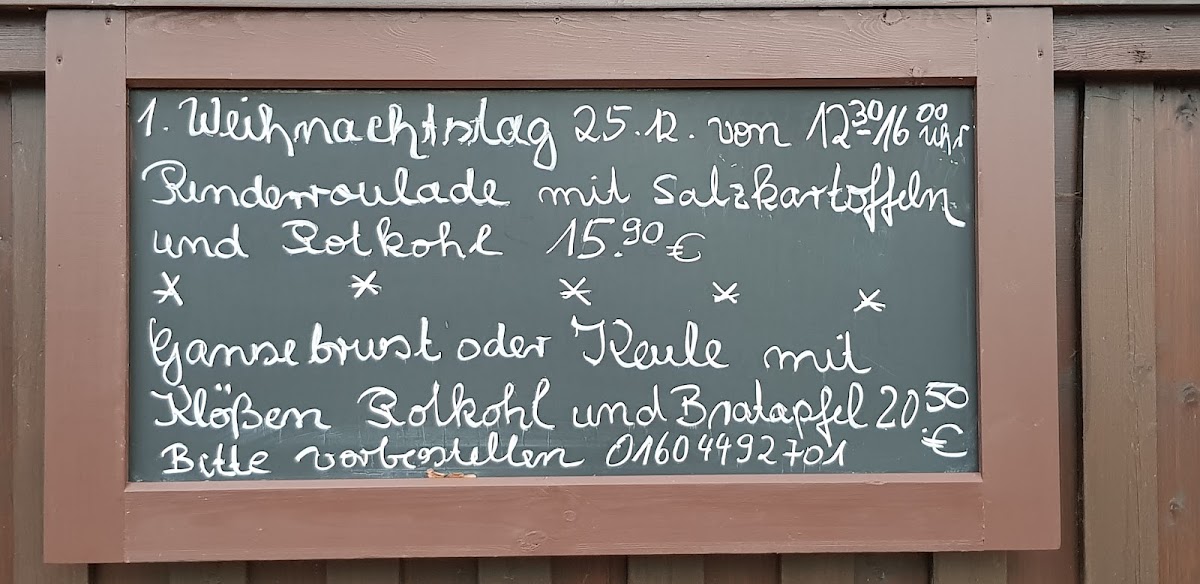 1. Weihnachtstag 25.12. von 12³⁰ 16⁰⁰ uhr
Rinderroulade mit Salzkartoffeln
und Rotkohl 15.90 €
* * * * *
Gansebrust oder Keule mit
Klößen Rotkohl und Bratapfel 20.50 €
Bitte vorbestellen 01604492701